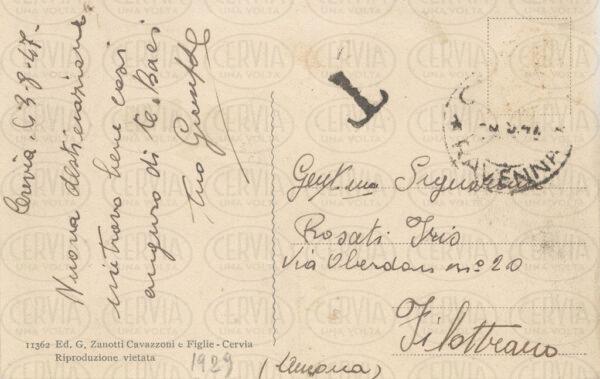 Cervia, li 3-8-47-
Nuova destinazione
mi trovo bene così
auguro di te. Baci
tuo
T
RAVENNA
Gent.ma Signorina
Rosati Iris
Via Oberdan n° 20
Filottrano
(Ancona)
11362 Ed. G. Zanotti Cavazzoni e Figlie - Cervia
Riproduzione vietata
1929
CERVIA
UNA VOLTA